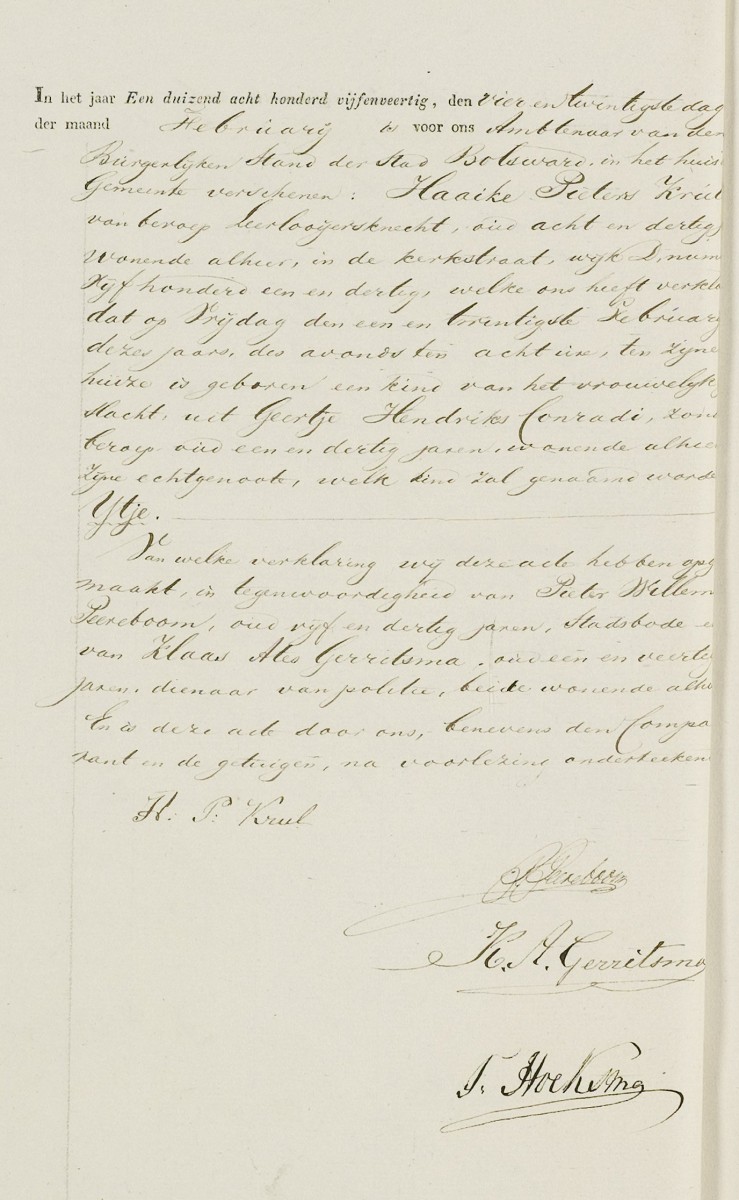 In het jaar Een duizend acht honderd vijfenveertig, den vier en twintigste dag
der maand February is voor ons Ambtenaar van den
Burgerlyken Stand der Stad Bolsward, in het huis
Gemeente verschenen: Haaike Pieters Krul
van beroep leerlooyersknecht, oud acht en dertig
wonende alhier, in de kerkstraat, wyk D, num
vyf honderd een en dertig, welke ons heeft verkla
dat op Vrydag den een en twintigste February
dezes jaars, des avonds ten acht ure, ten zyne
huize is geboren een kind van het vrouwelyk
slacht, uit Geertje Hendriks Conradi, zond
beroep oud een en dertig jaren, wonende alhie
zyne echtgenoote, welk kind zal genaamd worde
Ytje.
Van welke verklaring wy deze acte hebben opg
maakt, in tegenwoordigheid van Pieter Willem
Peereboom, oud vyf en dertig jaren, Stadsbode e
van Klaas Ates Gerritsma, oud een en veertig
jaren, dienaar van politie, beide wonende alhi
En is deze acte door ons, benevens den Compa
rant en de getuigen, na voorlezing onderteeken
H. P. Krul
P. Peereboom
K. A. Gerritsma
T. Hoeksma